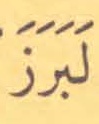 لَبَرَزَ